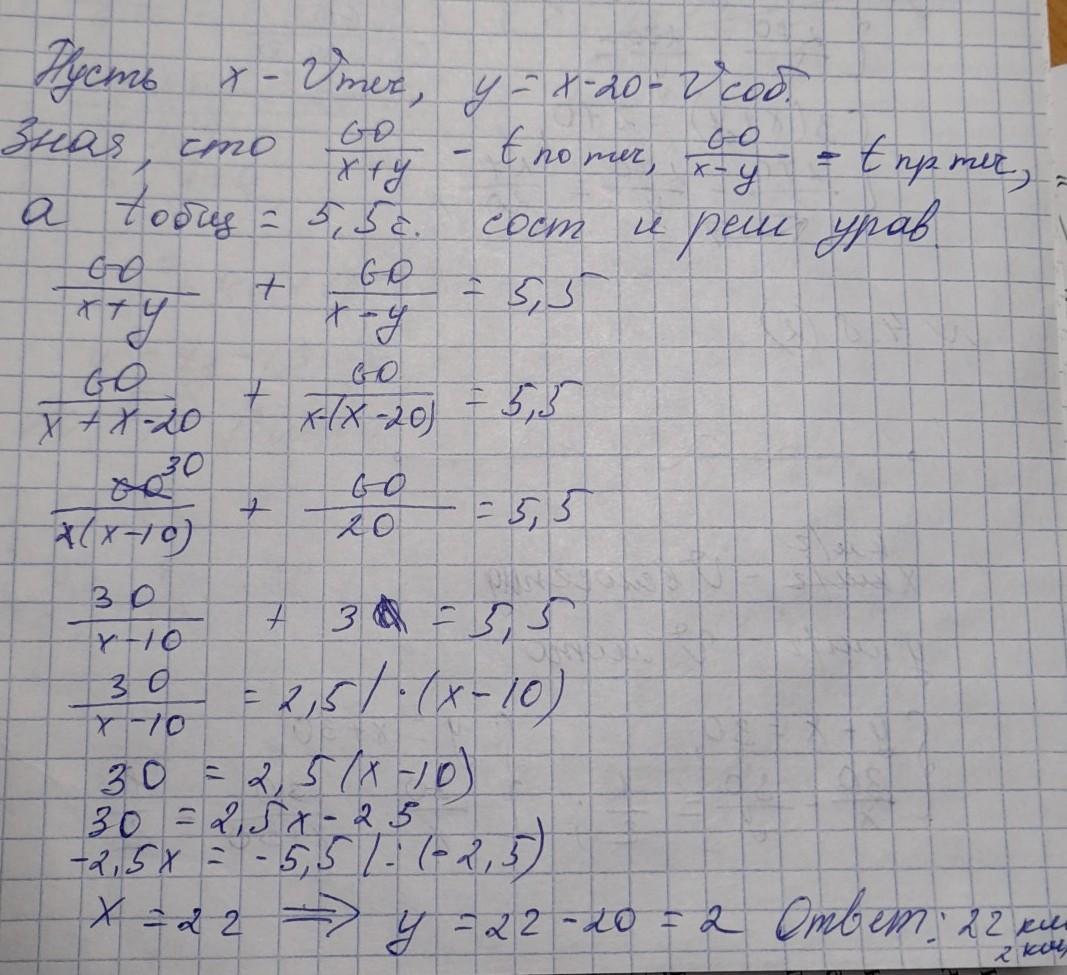 Пусть x - Vтеч, y = x-20 - Vсоб.
Зная, что 60/(x+y) - t по теч, 60/(x-y) = t пр теч,
а tобщ = 5,5 ч. сост и реш урав.
60/(x+y) + 60/(x-y) = 5,5
60/(x+x-20) + 60/(x-(x-20)) = 5,5
60 30/(2(x-10)) + 60/20 = 5,5
30/(x-10) + 3 = 5,5
30/(x-10) = 2,5 | · (x-10)
30 = 2,5(x-10)
30 = 2,5x - 25
-2,5x = -5,5 | : (-2,5)
x = 22 ⟹ y = 22 - 20 = 2 Ответ: 22 км
2 км